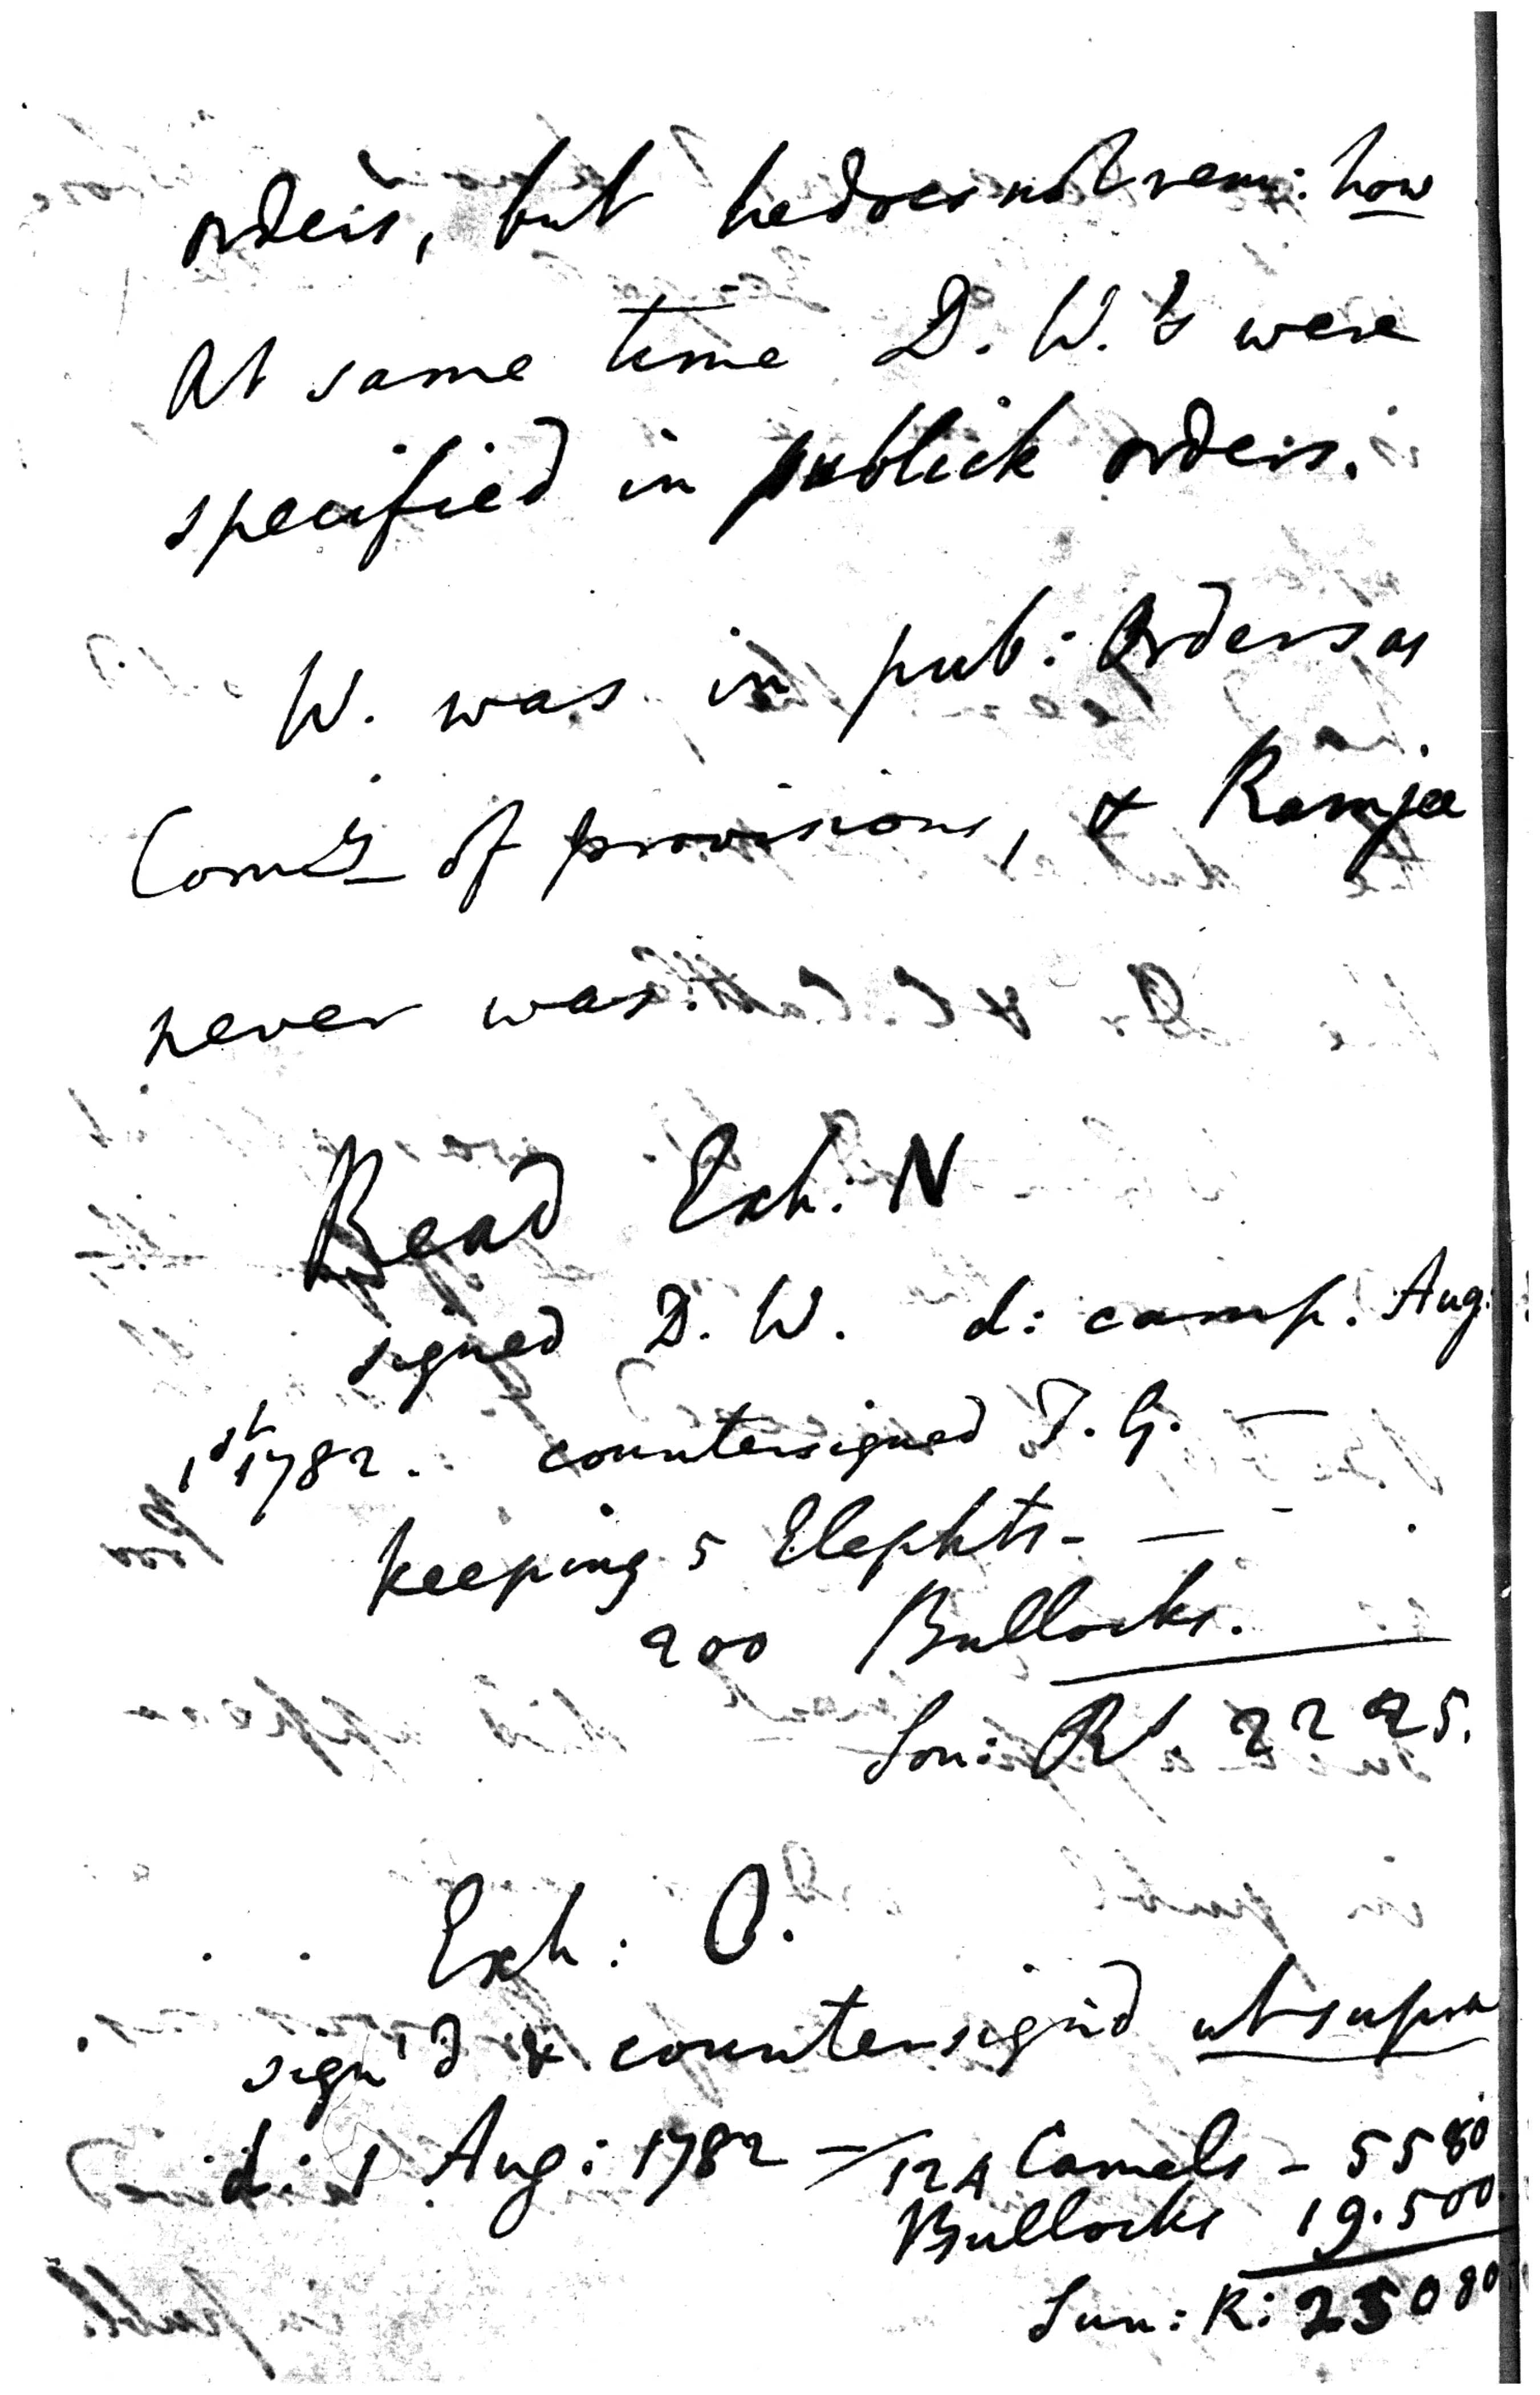 orders, but he does not rem: how
At same time D. W.'s were
specified in publick orders.
W. was in pub: Orders as
Comry of provisions, & Ramjee
never was.
Read Exh: N
signed D. W. d: camp. Aug:
1st 1782. countersigned T. G. —
keeping 5 Elephts - —
200 Bullocks.
Son: Rs. 2225.
Exh: O.
sign'd & countersign'd ut supra
d: 1 Aug: 1782 — 124 Camels - 5580
Bullocks 19.500
Sun: R: 25080